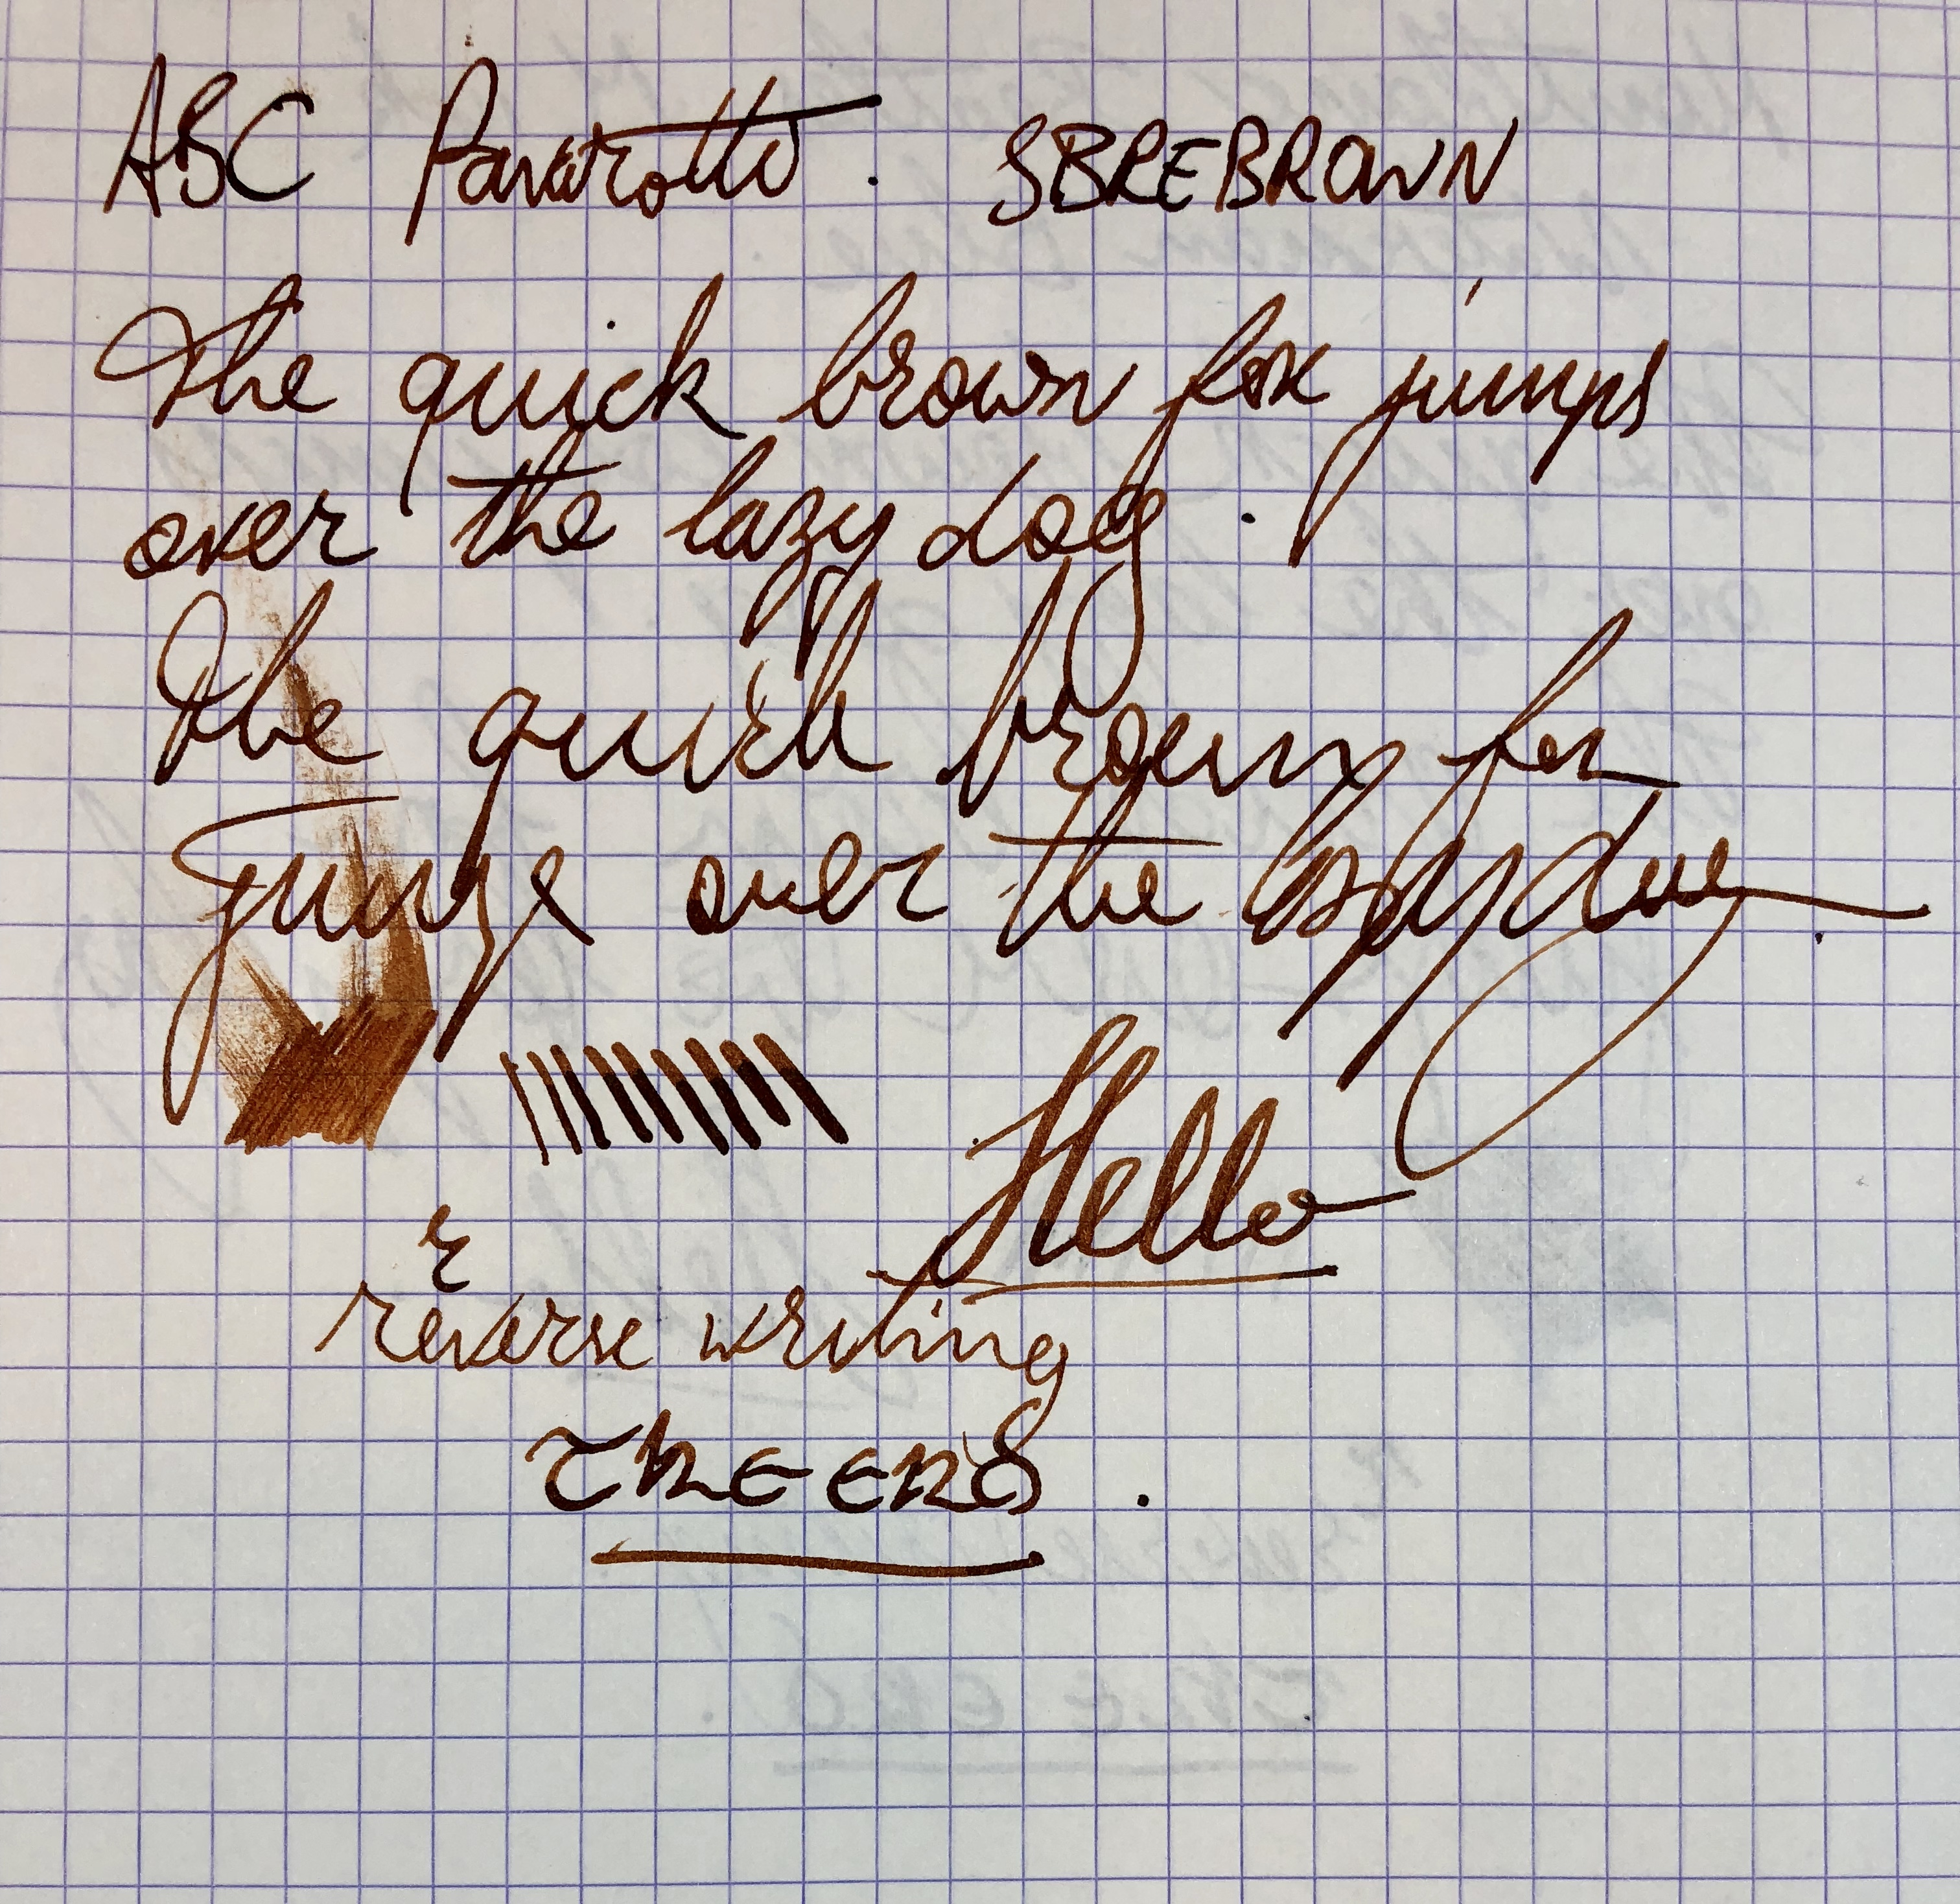 ABC Pavarotti. SBREBROWN
The quick brown fox jumps
over the lazy dog.
The quick brown fox
jumps over the lazy dog.
Hello
r
reverse writing
CHEERS.